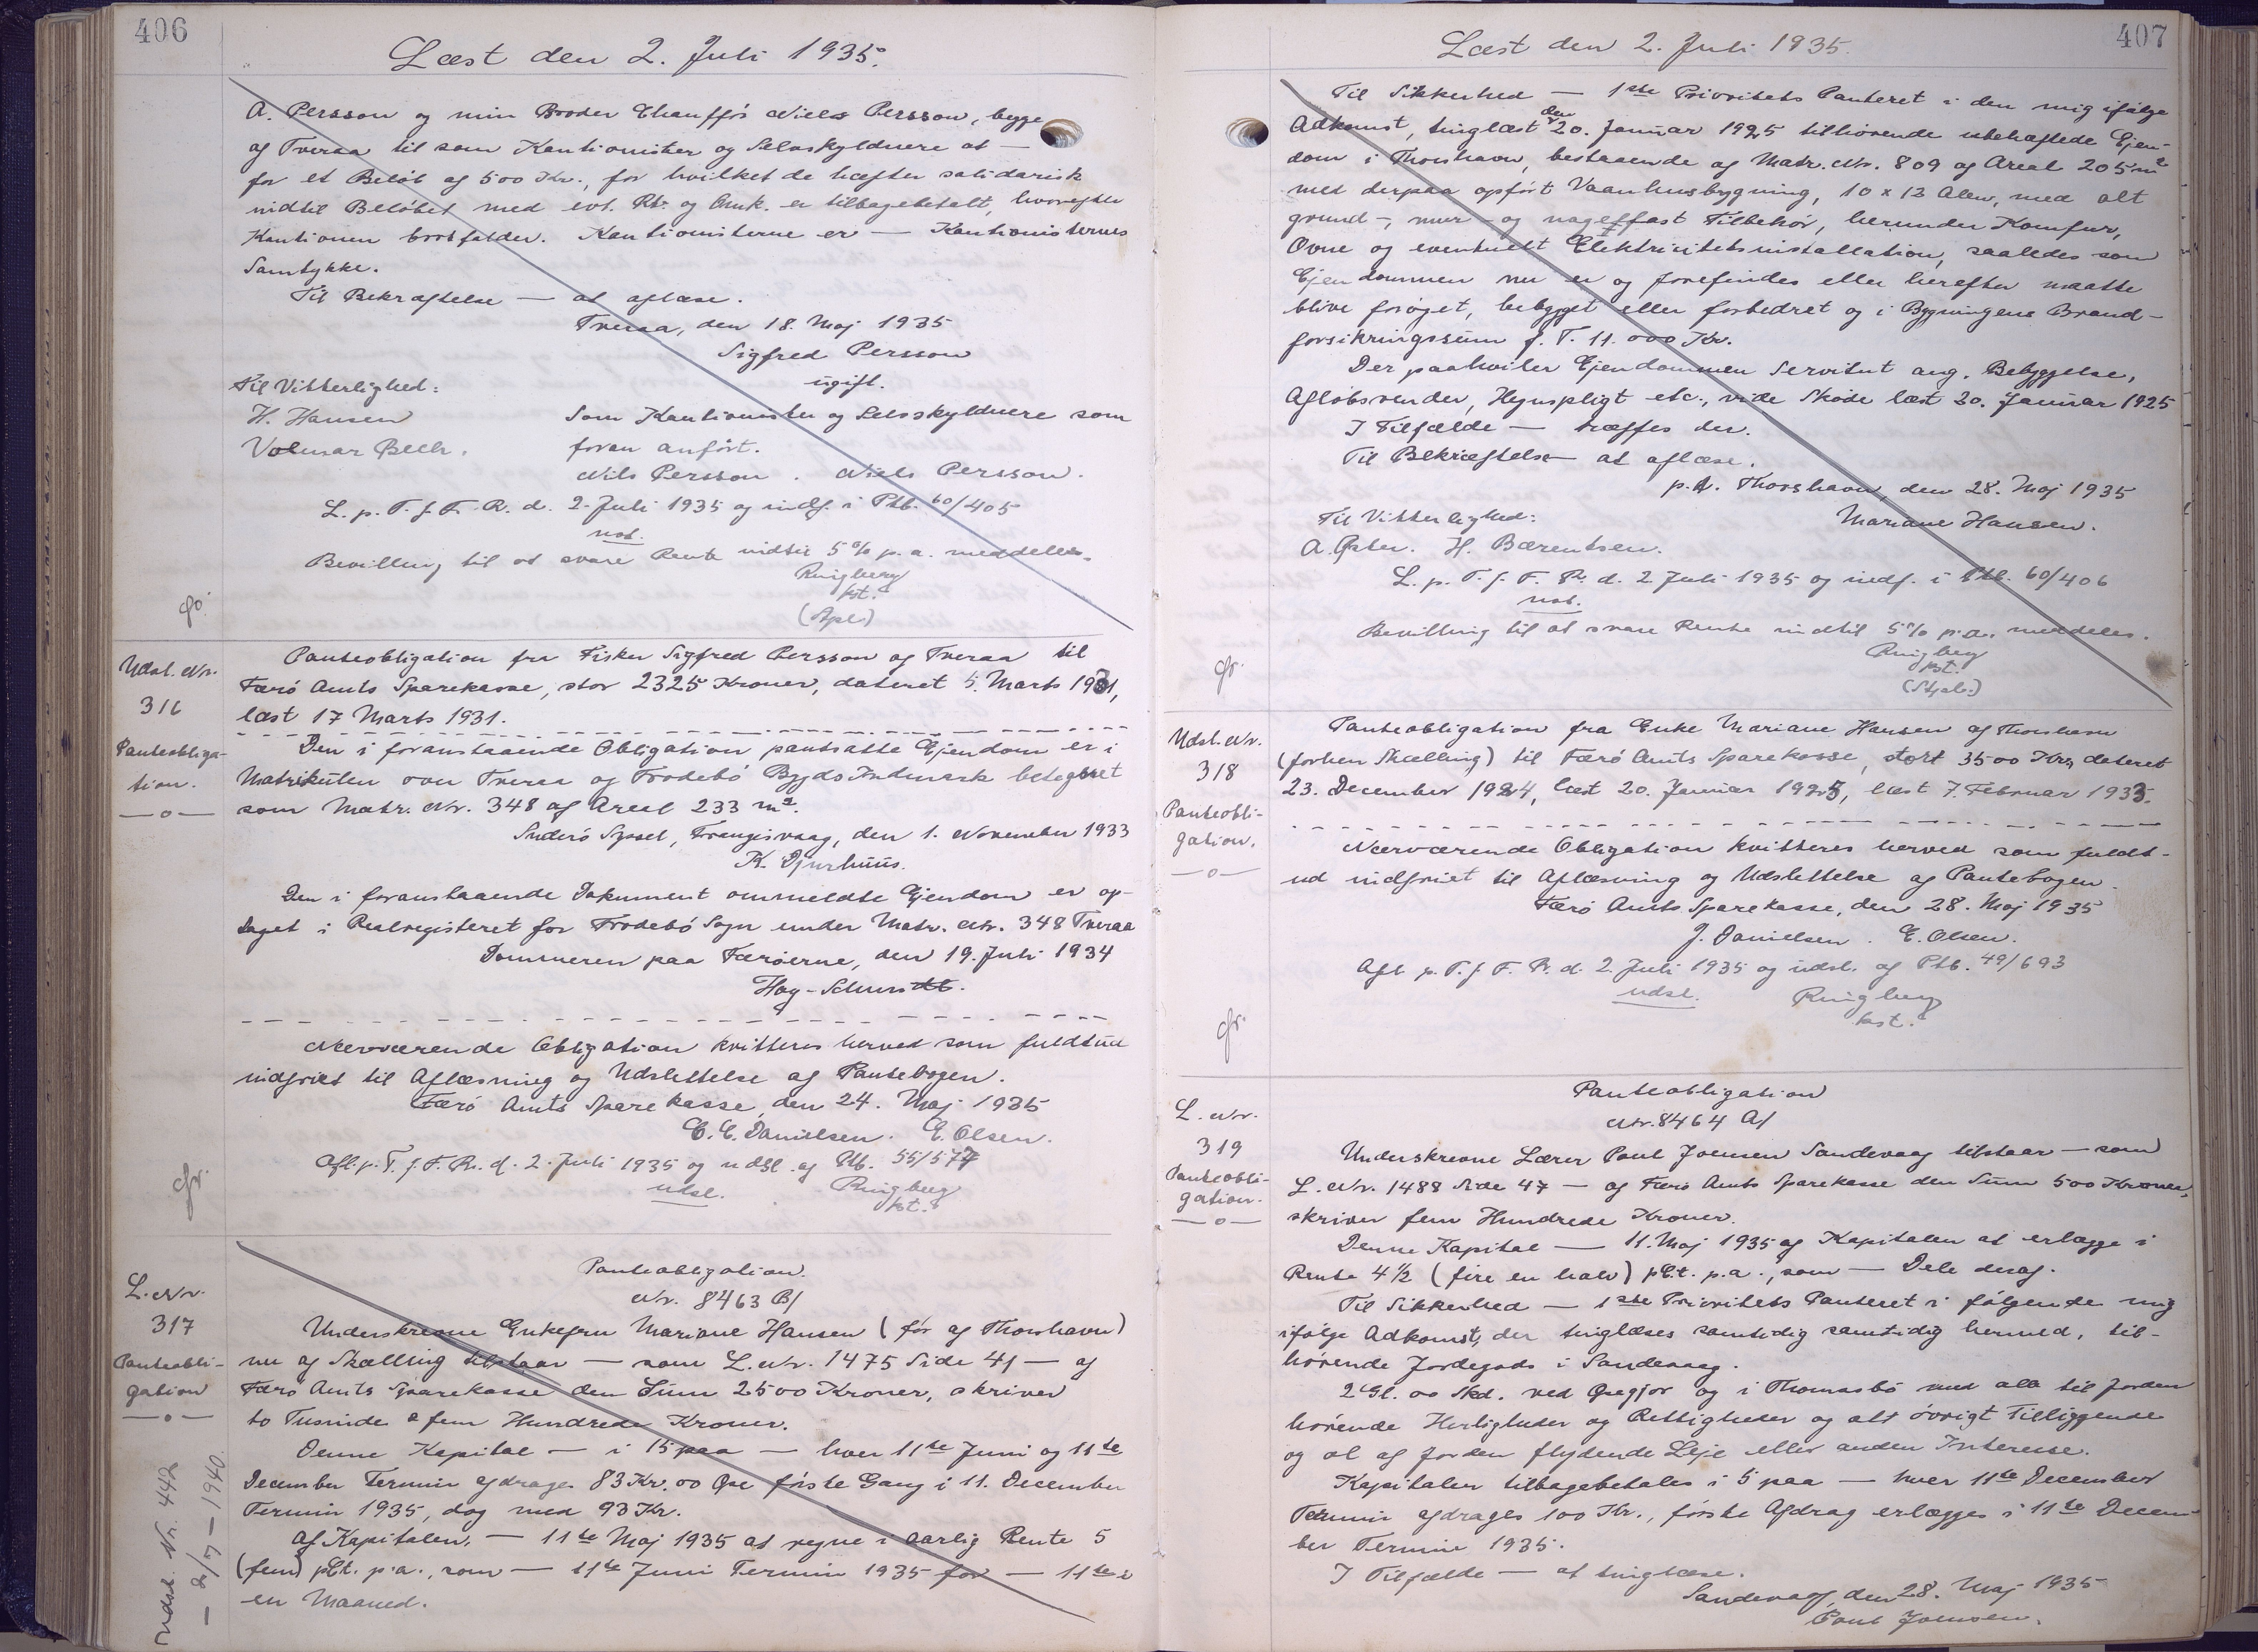 406
Læst den 2. Juli 1935.
A. Persson og min Broder Chauffør Niels Persson, begge
af Tveraa til som Kautionister og Selvskyldnere at —
for et Beløb af 500 Kr., for hvilket de hæfter solidarisk
indtil Beløbet med evt. Rtr. og Omk. er tilbagebetalt, hvorefter
Kautionen bortfalder. Kautionisterne er — Kautionisternes
Samtykke.
Til Bekræftelse — at aflæse.
Tveraa, den 18. Maj 1935
Sigfred Persson
ugift.
Til Vitterlighed:
H. Hansen
Som Kautionister og Selvskyldnere som
Volmar Bech.
foran anført.
Nils Persson . Niels Persson.
L. p. T. f. F. R. d. 2. Juli 1935 og indf. i Ptb. 60/405
not.
Bevilling til at svare Rente indtil 5% p.a. meddeles.
Ringberg
kst.
gr.
Udsl. Nr.
316
Panteobliga-
tion.
—o—
Panteobligation fra Fisker Sigfred Persson af Tveraa til
Færø Amts Sparekasse, stor 2325 Kroner, dateret 5. Marts 1931,
læst 17 Marts 1931.
Den i foranstaaende Obligation pantsatte Ejendom er i
Matrikulen over Tveraa og Frodebø Bygds Indmark betegnet
som Matr. Nr. 348 af Areal 233 m².
Suderø Syssel, Trangisvaag, den 1. November 1933
K. Djurhuus.
Den i foranstaaende Dokument ommeldte Ejendom er op-
taget i Realregisteret for Frodebø Sogn under Matr. Nr. 348 Tveraa
Dommeren paa Færøerne, den 19. Juli 1934
Høg-Schmidt.
Nærværende Obligation kvitteres herved som fuldtud
indfriet til Aflæsning og Udslettelse af Pantebogen.
Færø Amts Sparekasse, den 24. Maj 1935
C. C. Danielsen. E. Olsen.
Afl. p. T. f. F. R. d. 2. Juli 1935 og udsl. af Ptb. 55/577
udsl.
Ringberg
kst.
gr.
L. Nr.
317
Panteobli-
gation
—o—
Udsl. Nr. 442
— 2/7 — 1940.
Panteobligation.
Nr. 8463 B/
Underskrevne Enkefru Mariane Hansen (før af Thorshavn)
nu af Skælling tilstaar — som L. Nr. 1475 Side 41 — af
Færø Amts Sparekasse den Sum 2500 Kroner, skriver
to Tusinde & fem Hundrede Kroner.
Denne Kapital — i 15 paa — hver 11te Juni og 11te
December Termin afdrages 83 Kr. 00 Øre første Gang i 11. December
Termin 1935, dog med 93 Kr.
Af Kapitalen. — 11te Maj 1935 at regne i aarlig Rente 5
(fem) pCt. p.a., som — 11te Juni Termin 1935 for — 11te i
en Maaned.
407
Læst den 2. Juli 1935.
Til Sikkerhed — 1ste Prioritets Panteret i den mig ifølge
Adkomst, tinglæst den 20. Januar 1925 tilhørende ubehæftede Ejen-
dom i Thorshavn, bestaaende af Matr. Nr. 809 af Areal 205 m²
med derpaa opført Vaanhusbygning, 10 x 12 Alen, med alt
grund-, mur- og nagelfast Tilbehør, herunder Komfur,
Ovne og eventuelt Elektricitetsinstallation, saaledes som
Ejendommen nu er og forefindes eller herefter maatte
blive forøget, bebygget eller forbedret og i Bygningens Brand-
forsikringssum f. T. 11.000 Kr.
Der paahviler Ejendommen Servitut ang. Bebyggelse,
Afløbsrender, Hegnspligt etc., vide Skøde læst 20. Januar 1925
I Tilfælde — træffes der.
Til Bekræftelse — at aflæse.
p.t. Thorshavn, den 28. Maj 1935
Til Vitterlighed:
Mariane Hansen.
A. Øster. H. Bærentsen.
L. p. T. f. F. R. d. 2 Juli 1935 og indf. i Ptb. 60/406
not.
Bevilling til at svare Rente indtil 5% p.a. meddeles.
Ringberg
kst.
gr.
Udsl. Nr.
318
Panteobli-
gation.
—o—
Panteobligation fra Enke Mariane Hansen af Thorshavn
(forhen Skælling) til Færø Amts Sparekasse, stort 3500 Kr, dateret
23. December 1924, læst 20. Januar 1925, læst 7. Februar 1933.
Nærværende Obligation kvitteres herved som fuldt-
ud indfriet til Aflæsning og Udslettelse af Pantebogen.
Færø Amts Sparekasse, den 28. Maj 1935
J. Danielsen. E. Olsen.
Afl. p. T. f. F. R. d. 2. Juli 1935 og udsl. af Ptb. 49/693
udsl.
Ringberg
kst.
gr.
L. Nr.
319
Panteobli-
gation.
—o—
Panteobligation
Nr. 8464 A/
Underskrevne Lærer Poul Joensen Sandevaag tilstaar — som
L. Nr. 1488 Side 47 — af Færø Amts Sparekasse den Sum 500 Kroner,
skriver fem Hundrede Kroner.
Denne Kapital — 11. Maj 1935 af Kapitalen at erlægge i
Rente 4½ (fire en halv) pCt. p.a., som — Dele deraf.
Til Sikkerhed — 1ste Prioritets Panteret i følgende mig
ifølge Adkomst, der tinglæses samtidig samtidig hermed, til-
hørende Jordegods i Sandevaag.
2 Gl. 00 Skd. ved Gregjor og i Thomasbø med alle til Jorden
hørende Herligheder og Rettigheder og alt øvrigt Tilliggende
og al af Jorden flydende Leje eller anden Interesse.
Kapitalen tilbagebetales i 5 paa — hver 11te December
Termin afdrages 100 Kr., første Afdrag erlægges i 11te Decem-
ber Termin 1935.
I Tilfælde — at tinglæse.
Sandevaag, den 28. Maj 1935
Poul Joensen.